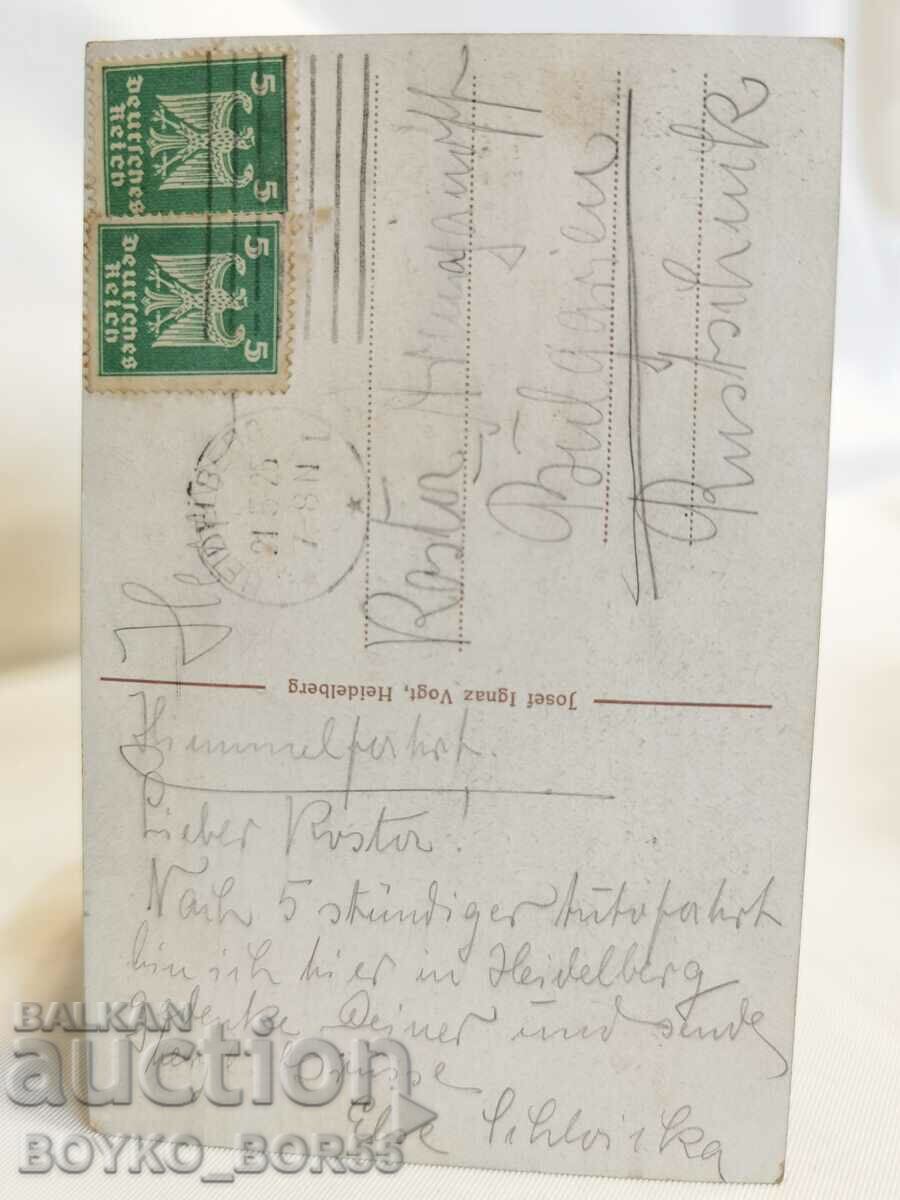 5 5
Deutsches
Reich
5 5
Deutsches
Reich
HEIDELB
21.5.25
7-8 N
He
Rosta
Bulgarien
Rustschuk
Josef Ignaz Vogt, Heidelberg
Himmelfahrt.
Lieber Rosta!
Nach 5 stündiger Autofahrt
bin ich hier in Heidelberg
gedenke Deiner und sende
herzl. Grüsse
Else
BALKAN
auction
BOYKO_BOR55